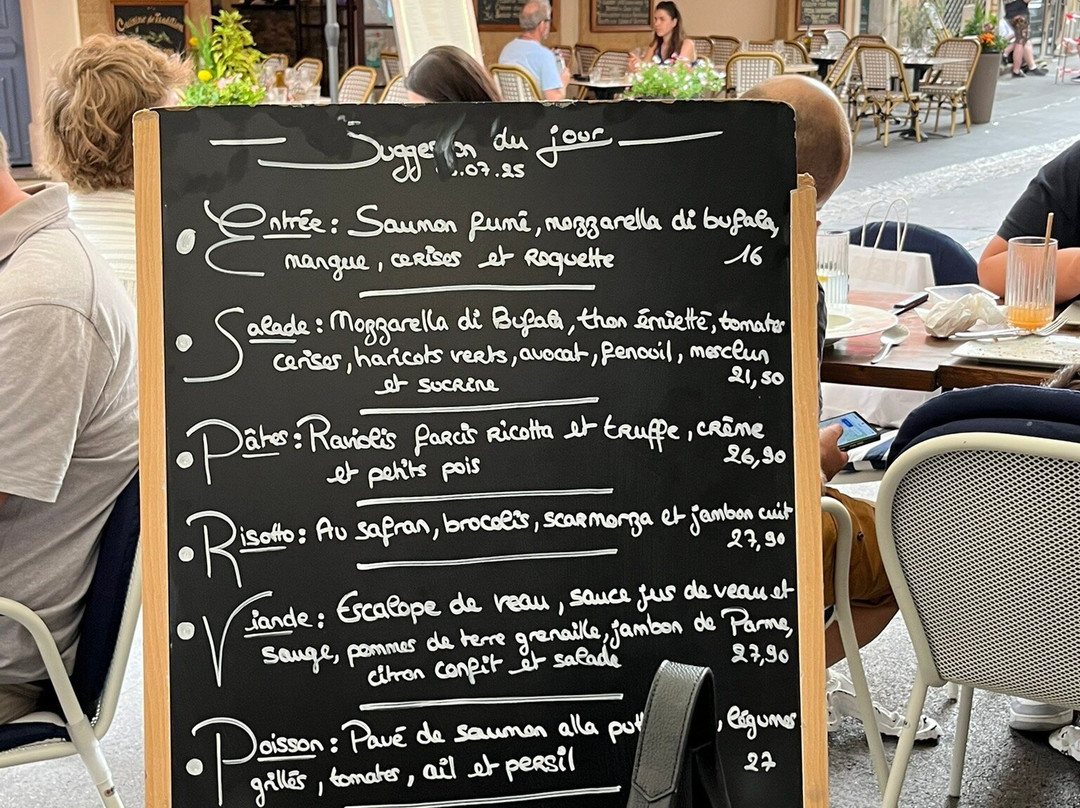 Cuisine de Tradition
Suggestion du jour
.07.25
Entrée : Saumon fumé, mozzarella di bufala,
mangue, cerises et Roquette 16
Salade : Mozzarella di Bufala, thon émietté, tomates
cerises, haricots verts, avocat, fenouil, mesclun
et sucrine 21,50
Pâtes : Raviolis farcis ricotta et truffe, crème
et petits pois 26,90
Risotto : Au safran, brocolis, scarmorza et jambon cuit
27,90
Viande : Escalope de veau, sauce jus de veau et
sauge, pommes de terre grenaille, jambon de Parme,
citron confit et salade 27,90
Poisson : Pavé de saumon alla , légumes
grillés, tomates, ail et persil 27